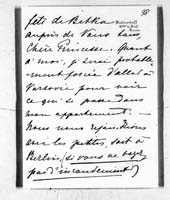 38
fête de Betka
auprès de Vous tous,
Chère Princesse. Quant
à moi, je serai probable
ment forcée d'aller à
Varsovie pour voir
ce qui se passe dans
mon appartement. —
Nous nous rejoindrons
avec les petites, soit à
Berlin, si vous ne
pas d'inconvénient